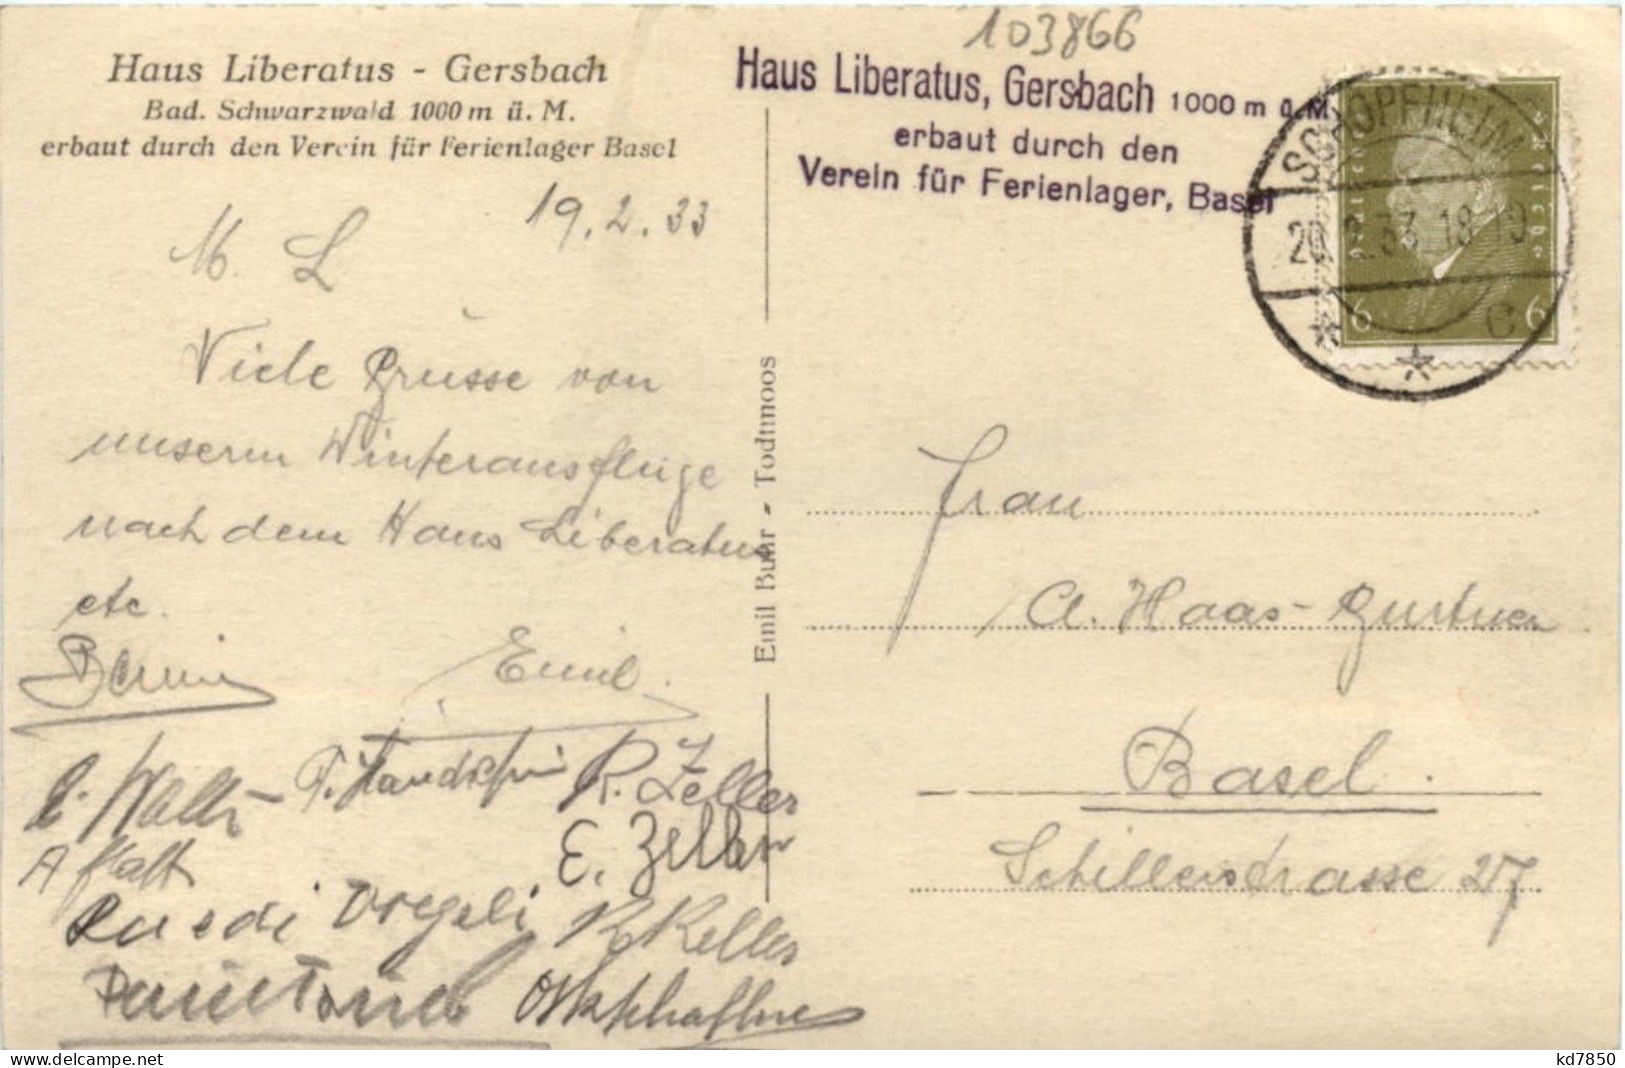 103866
Haus Liberatus - Gersbach
Bad. Schwarzwald 1000 m ü. M.
erbaut durch den Verein für Ferienlager Basel
Haus Liberatus, Gersbach 1000 m ü. M.
erbaut durch den
Verein für Ferienlager, Basel
SCHOPFHEIM
20.2.33.18-19
C
Deutsches Reich
6 6
19.2.33
M. L
Viele Grüsse von
unserm Winterausfluge
nach dem Haus Liberatus
etc.
Emil.
R. Zeller
E. Zeller
Ruedi Vögeli
R Keller
Emil Buhr - Todtmoos
Frau
A. Haas-Gurtner
Basel.
Schillerstrasse 27
kd7850
delcampe.net